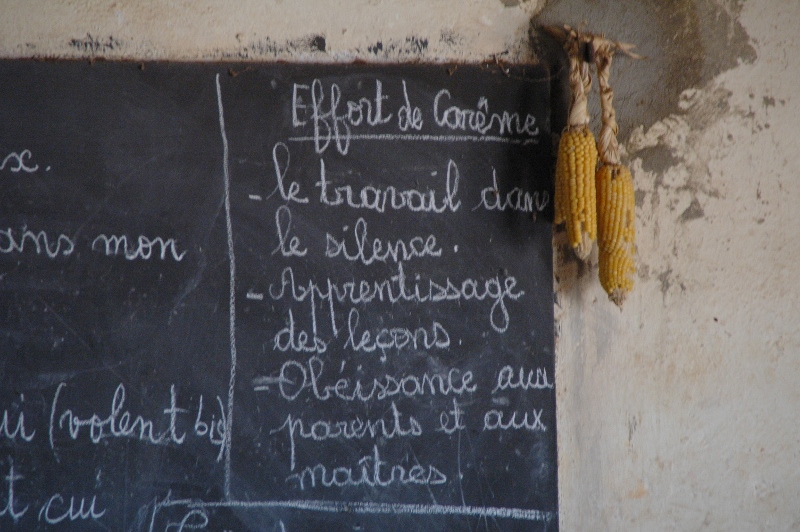 x.
ans mon
ui (volent bis)
t cui
Effort de Carême
- le travail dans
le silence.
- Apprentissage
des leçons.
- Obéissance aux
parents et aux
maîtres.